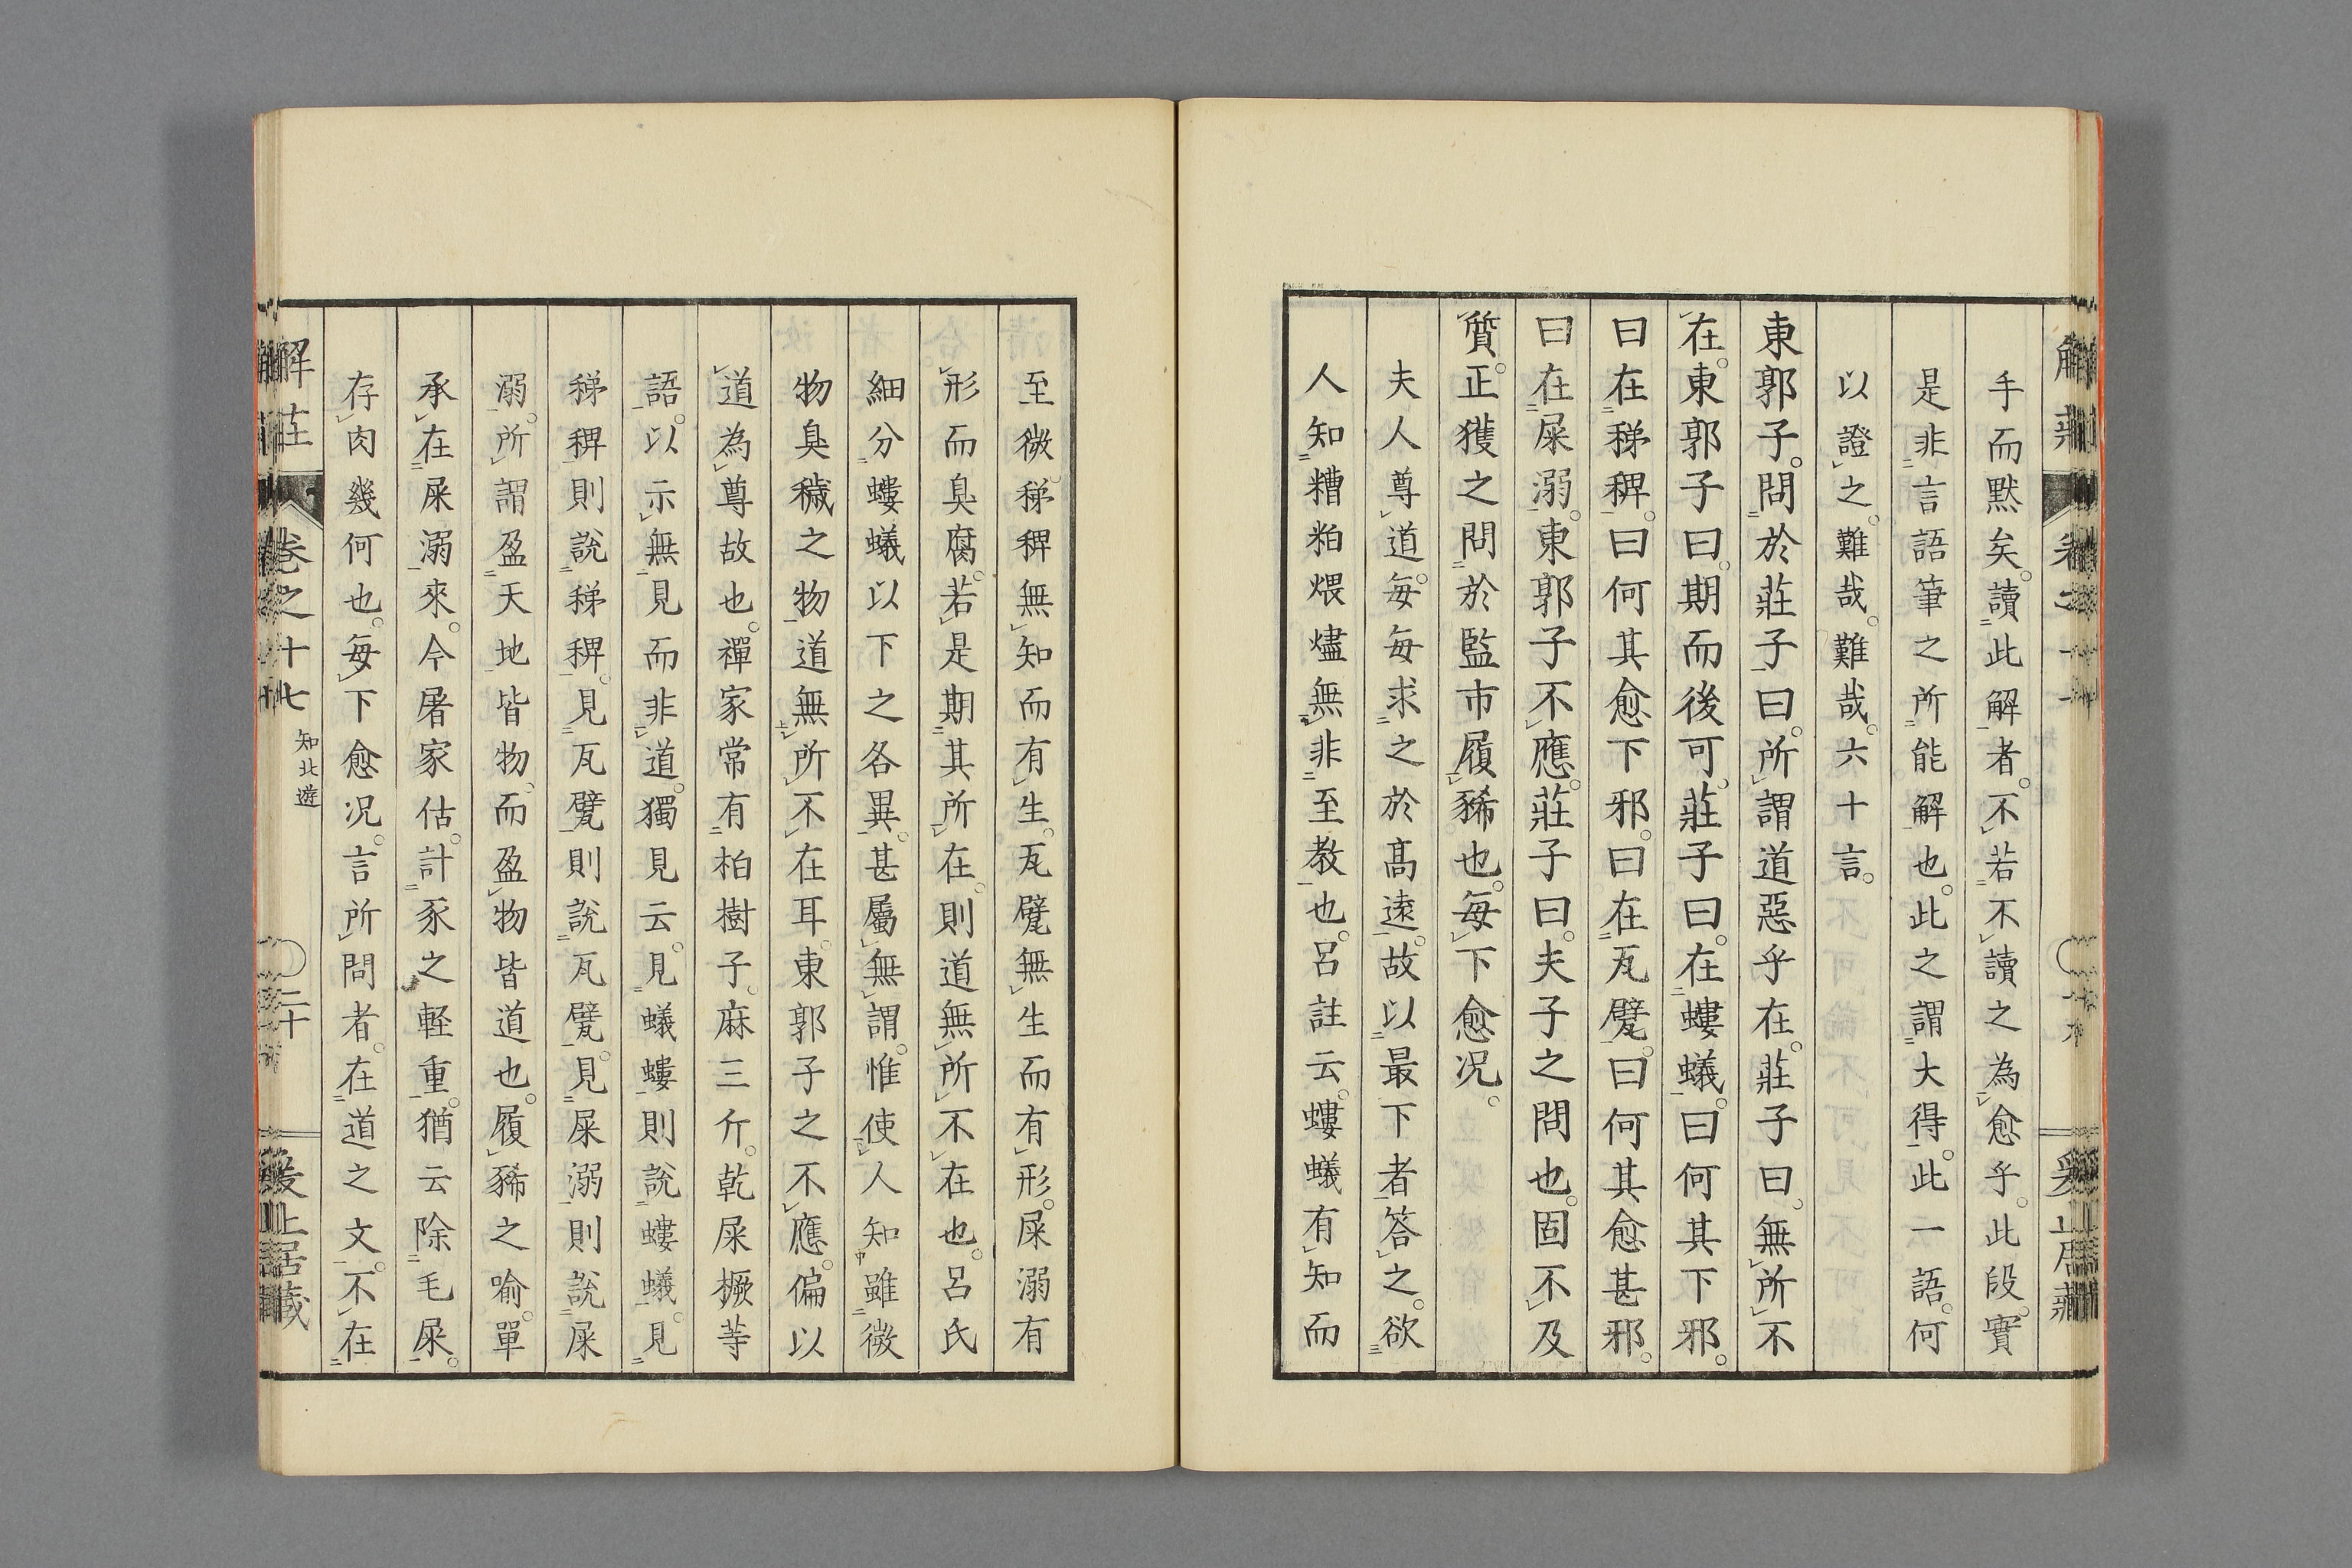 手而默矣。讀此解者。不若不讀之為愈乎。此段。實
是非言語筆之所能解也。此之謂大得。此一語。何
以證之。難哉。難哉。六十言。
東郭子。問於莊子曰。所謂道惡乎在。莊子曰。無所不
在。東郭子曰。期而後可。莊子曰。在螻蟻。曰何其下邪。
曰在稊稗。曰何其愈下邪。曰在瓦甓。曰何其愈甚邪。
曰在屎溺。東郭子不應。莊子曰。夫子之問也。固不及
質。正獲之問於監市履豨也。每下愈况。
夫人尊道。每每求之於髙遠。故以最下者答之。欲
人知糟粕煨燼無非至教也。呂註云。螻蟻有知而
至微。稊稗無知而有生。瓦甓無生而有形。屎溺有
形而臭腐。若是期其所在。則道無所不在也。呂氏
細分螻蟻以下之各異。甚屬無謂。惟使人知雖微
物臭穢之物道無所不在耳。東郭子之不應。偏以
道為尊故也。禪家常有柏樹子。麻三斤。乾屎橛等
語。以示無見而非道。獨見云。見蟻螻則說螻蟻。見
稊稗則說稊稗。見瓦甓則說瓦甓。見屎溺則說屎
溺。所謂盈天地皆物。而盈物皆道也。履豨之喻。單
承在屎溺來。今屠家估計豕之輕重。猶云除毛屎。
存肉幾何也。每下愈况。言所問者。在道之文。不在
解莊
卷之十七
知北遊
二十